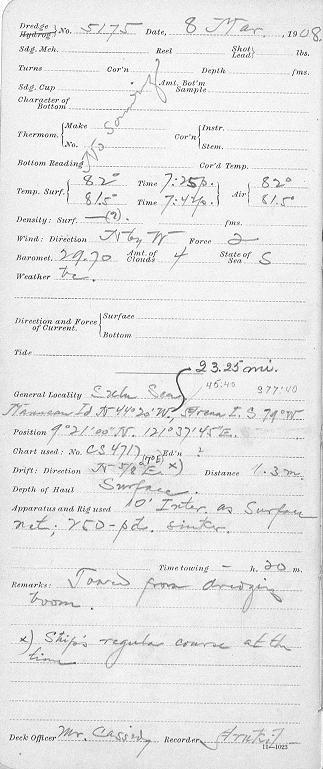 Dredge
Hydrog. } No. 5175 Date, 8 Mar., 1908.
Sdg. Mch. Reel Shot Lead } lbs.
Turns Cor'n Depth fms.
Sdg. Cup Amt. Bot'm Sample
Character of Bottom
No Sounding
Thermom. { Make No. Cor'n { Instr. Stem.
Bottom Reading Cor'd Temp.
Temp. Surf. { 82° Time 7:25 p. Air { 82°
81.5° Time 7:44 p. 81.5°
Density: Surf. —(?) fms.
Wind: Direction N by W Force 2
Baromet. 29.70 Amt. of Clouds 4 State of Sea S
Weather bc.
Direction and Force of Current. { Surface
Bottom
Tide
23.25 mi.
General Locality Sulu Sea
Id. N 44° 20' W. Arena I. S 79° W
Position 9° 21' 00" N. 121° 37' 45" E.
Chart used: No. CS 4717 Ed'n
Drift: Direction N 5/8 E. x) Distance 1.3 m.
Depth of Haul Surface.
Apparatus and Rig used 10' Inter. as Surface
net; 250-pd. sinker.
Time towing — h. 20 m.
Remarks: Towed from dredging
boom.
x) Ship's regular course at the
time
Deck Officer Mr. Cassidy Recorder
11—1023